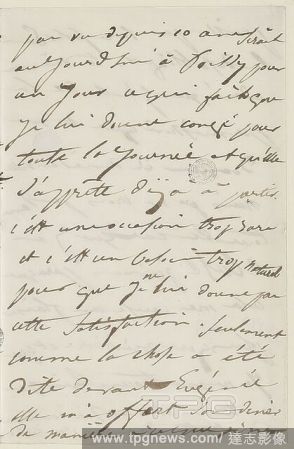 pas vu depuis 10 ans serait
aujourd'hui à Poissy pour
un jour ce qui fait que
je lui donne congé pour
toute la journée et qu'elle
s'apprête déja à partir.
c'est une occasion trop rare
et c'est un besoin trop naturel
pour que je ne lui donne pas
cette satisfaction. Seulement
comme la chose a été
dite devant Eugénie
elle m'a offert de dîner
de manière
TPG
www.tpgnews.com 達志影像